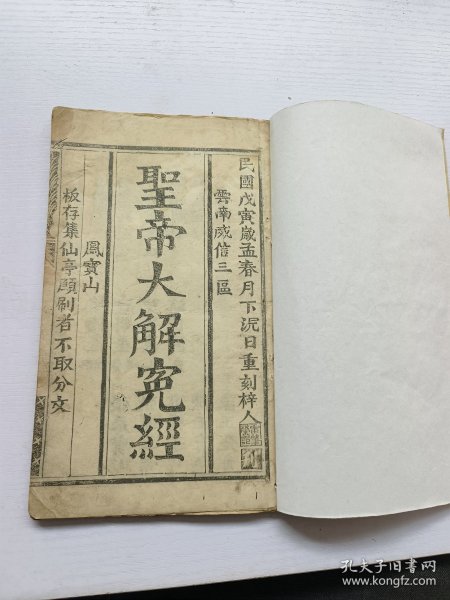 民國戊寅歲孟春月下浣日重刻梓人
雲南威信三區
聖帝大解冤經
鳳寶山
板存集仙亭願刷者不取分文
孔夫子旧书网
www.kongfz.com